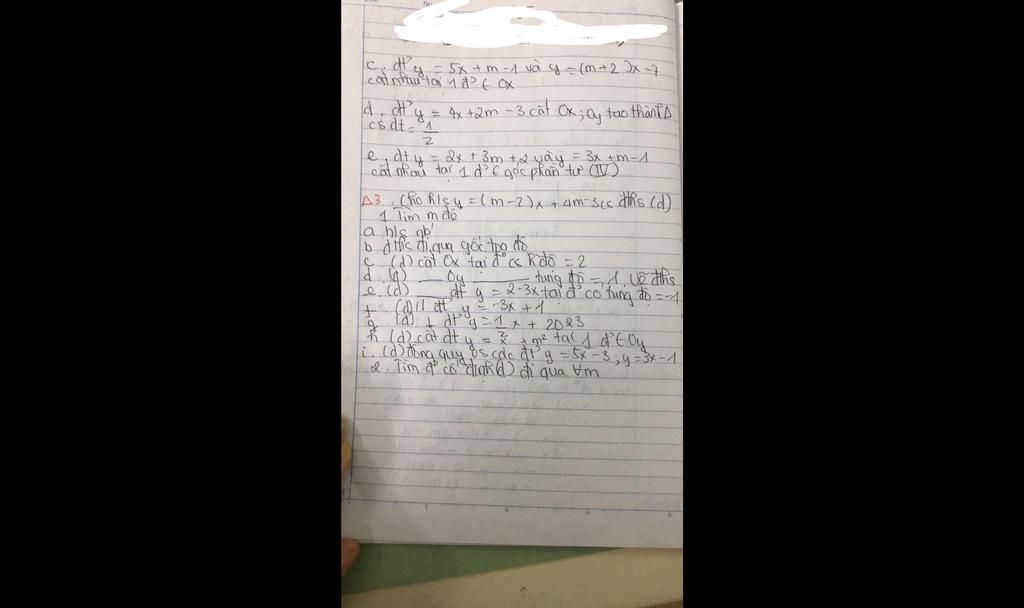 c, đt² y = 5x + m - 1 và y = (m+2)x - 7
cắt nhau tại 1 đ² ∈ Ox
d. đt² y = 4x + 2m - 3 cắt Ox; Oy tạo thành Δ
có dt = 1/2
e, đt y = 2x + 3m + 2 và y = 3x + m - 1
cắt nhau tại 1 đ² ∈ góc phần tư (IV)
Δ3. Cho h/s y = (m-2)x + 4m - 3 có đths (d)
1 Tìm m để
a h/s nb'
b đths đi qua gốc tọa độ
c. (d) cắt Ox tại đ² có h đồ = 2
d. (d) __ Oy ____ tung độ = 1. Vẽ đths
e. (d) ___ đt y = 2-3x tại đ² có tung độ = -1
f. (d) // đt² y = -3x + 1
g (d) ⊥ đt² y = 1/2 x + 2023
h (d) cắt đt y = x + m² tại 1 đ² ∈ Oy
i. (d) đồng quy vs các đt² y = 5x - 3; y = 3x - 1
2. Tìm đ² cố định (d) đi qua ∀m